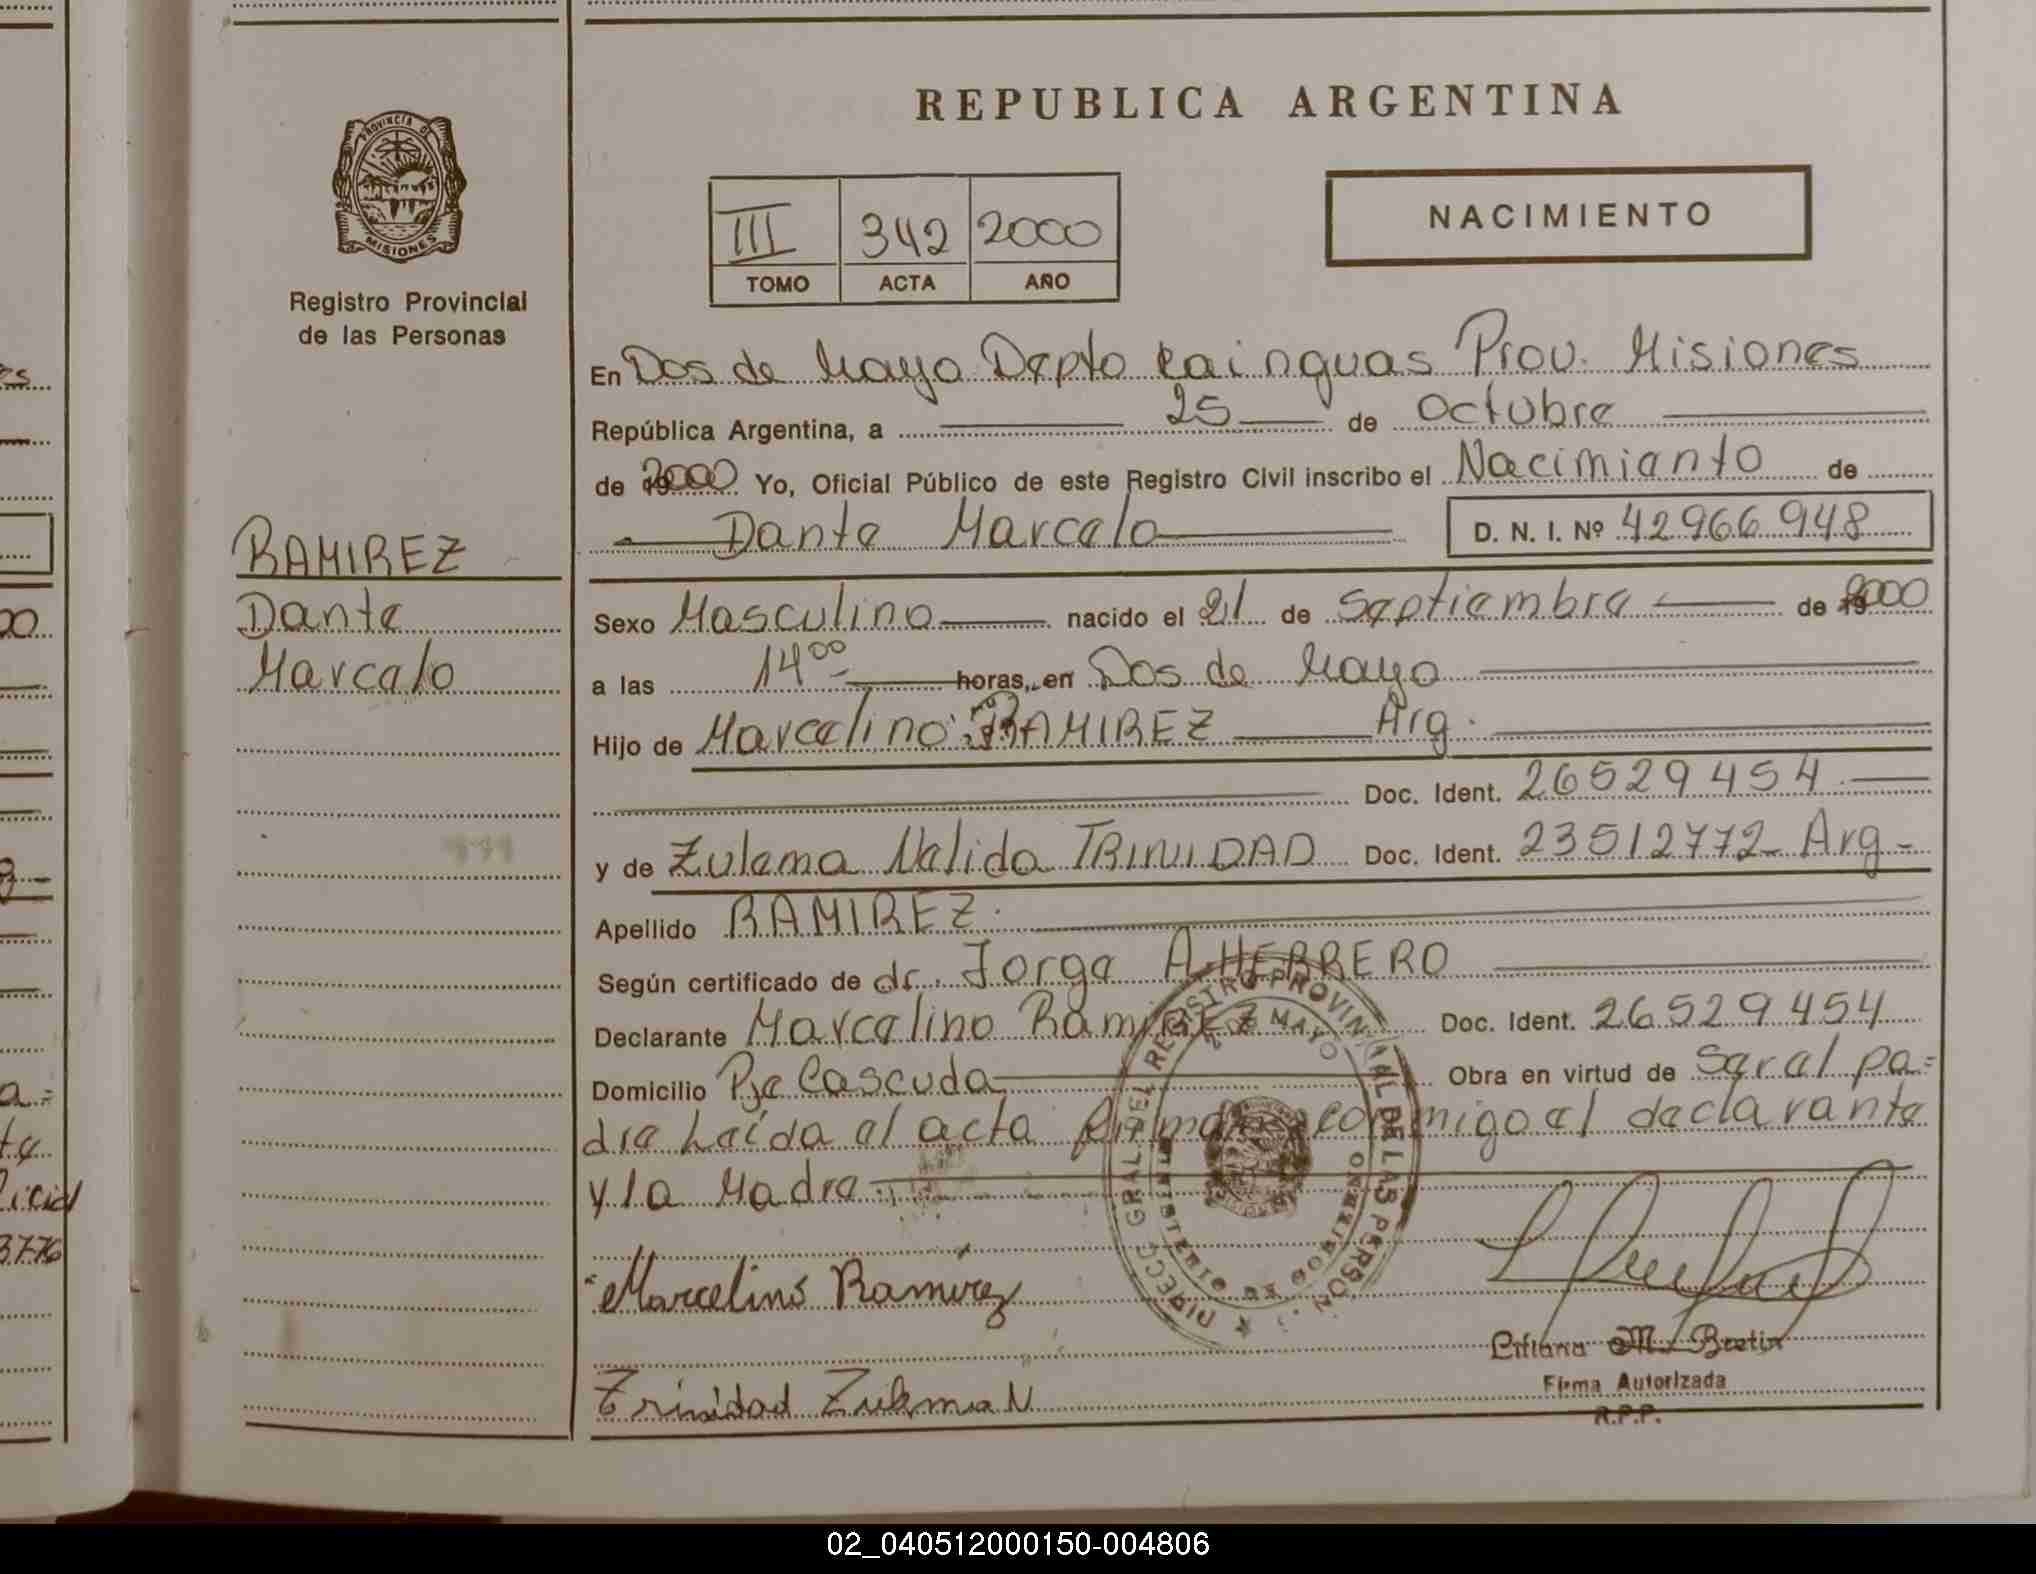 REPUBLICA ARGENTINA
PROVINCIA DE
MISIONES
Registro Provincial
de las Personas
III 342 2000
TOMO ACTA AÑO
NACIMIENTO
En Dos de Mayo Depto Cainguas Prov. Misiones
República Argentina, a 25 de Octubre
de 2000 Yo, Oficial Público de este Registro Civil inscribo el Nacimiento de
Dante Marcelo D. N. I. Nº 42966948
RAMIREZ
Dante
Marcelo
Sexo Masculino nacido el 21 de Septiembre de 2000
a las 14 00 horas, en Dos de Mayo
Hijo de Marcelino RAMIREZ Arg.
Doc. Ident. 26529454
y de Zulema Nelida TRINIDAD Doc. Ident. 23512772 - Arg -
Apellido RAMIREZ.
Según certificado de dr. Jorge A. HERRERO
Declarante Marcelino RamIREZ Doc. Ident. 26529454
Domicilio Pje Cascuda Obra en virtud de ser el pa=
dre Leída el acta firman conmigo el declarante
y la Madre
DIRECC. GRAL. DEL REGISTRO PROVINCIAL DE LAS PERSON
2 DE MAYO
MINISTERIO DE GOBIERNO
Marcelino Ramirez
Trinidad Zulema N
Liliana M. Bretin
Firma Autorizada
R.P.P.
02_040512000150-004806